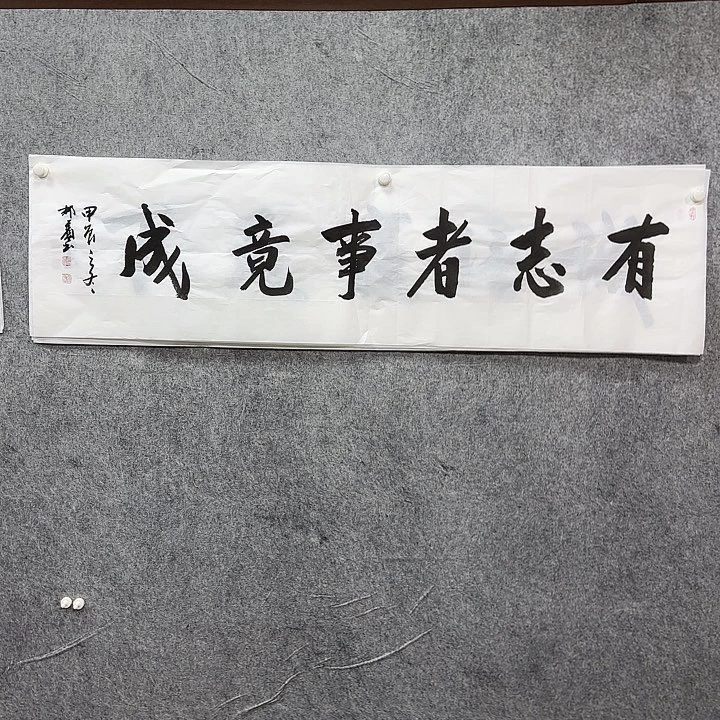 有志者事竟成
甲辰之夏